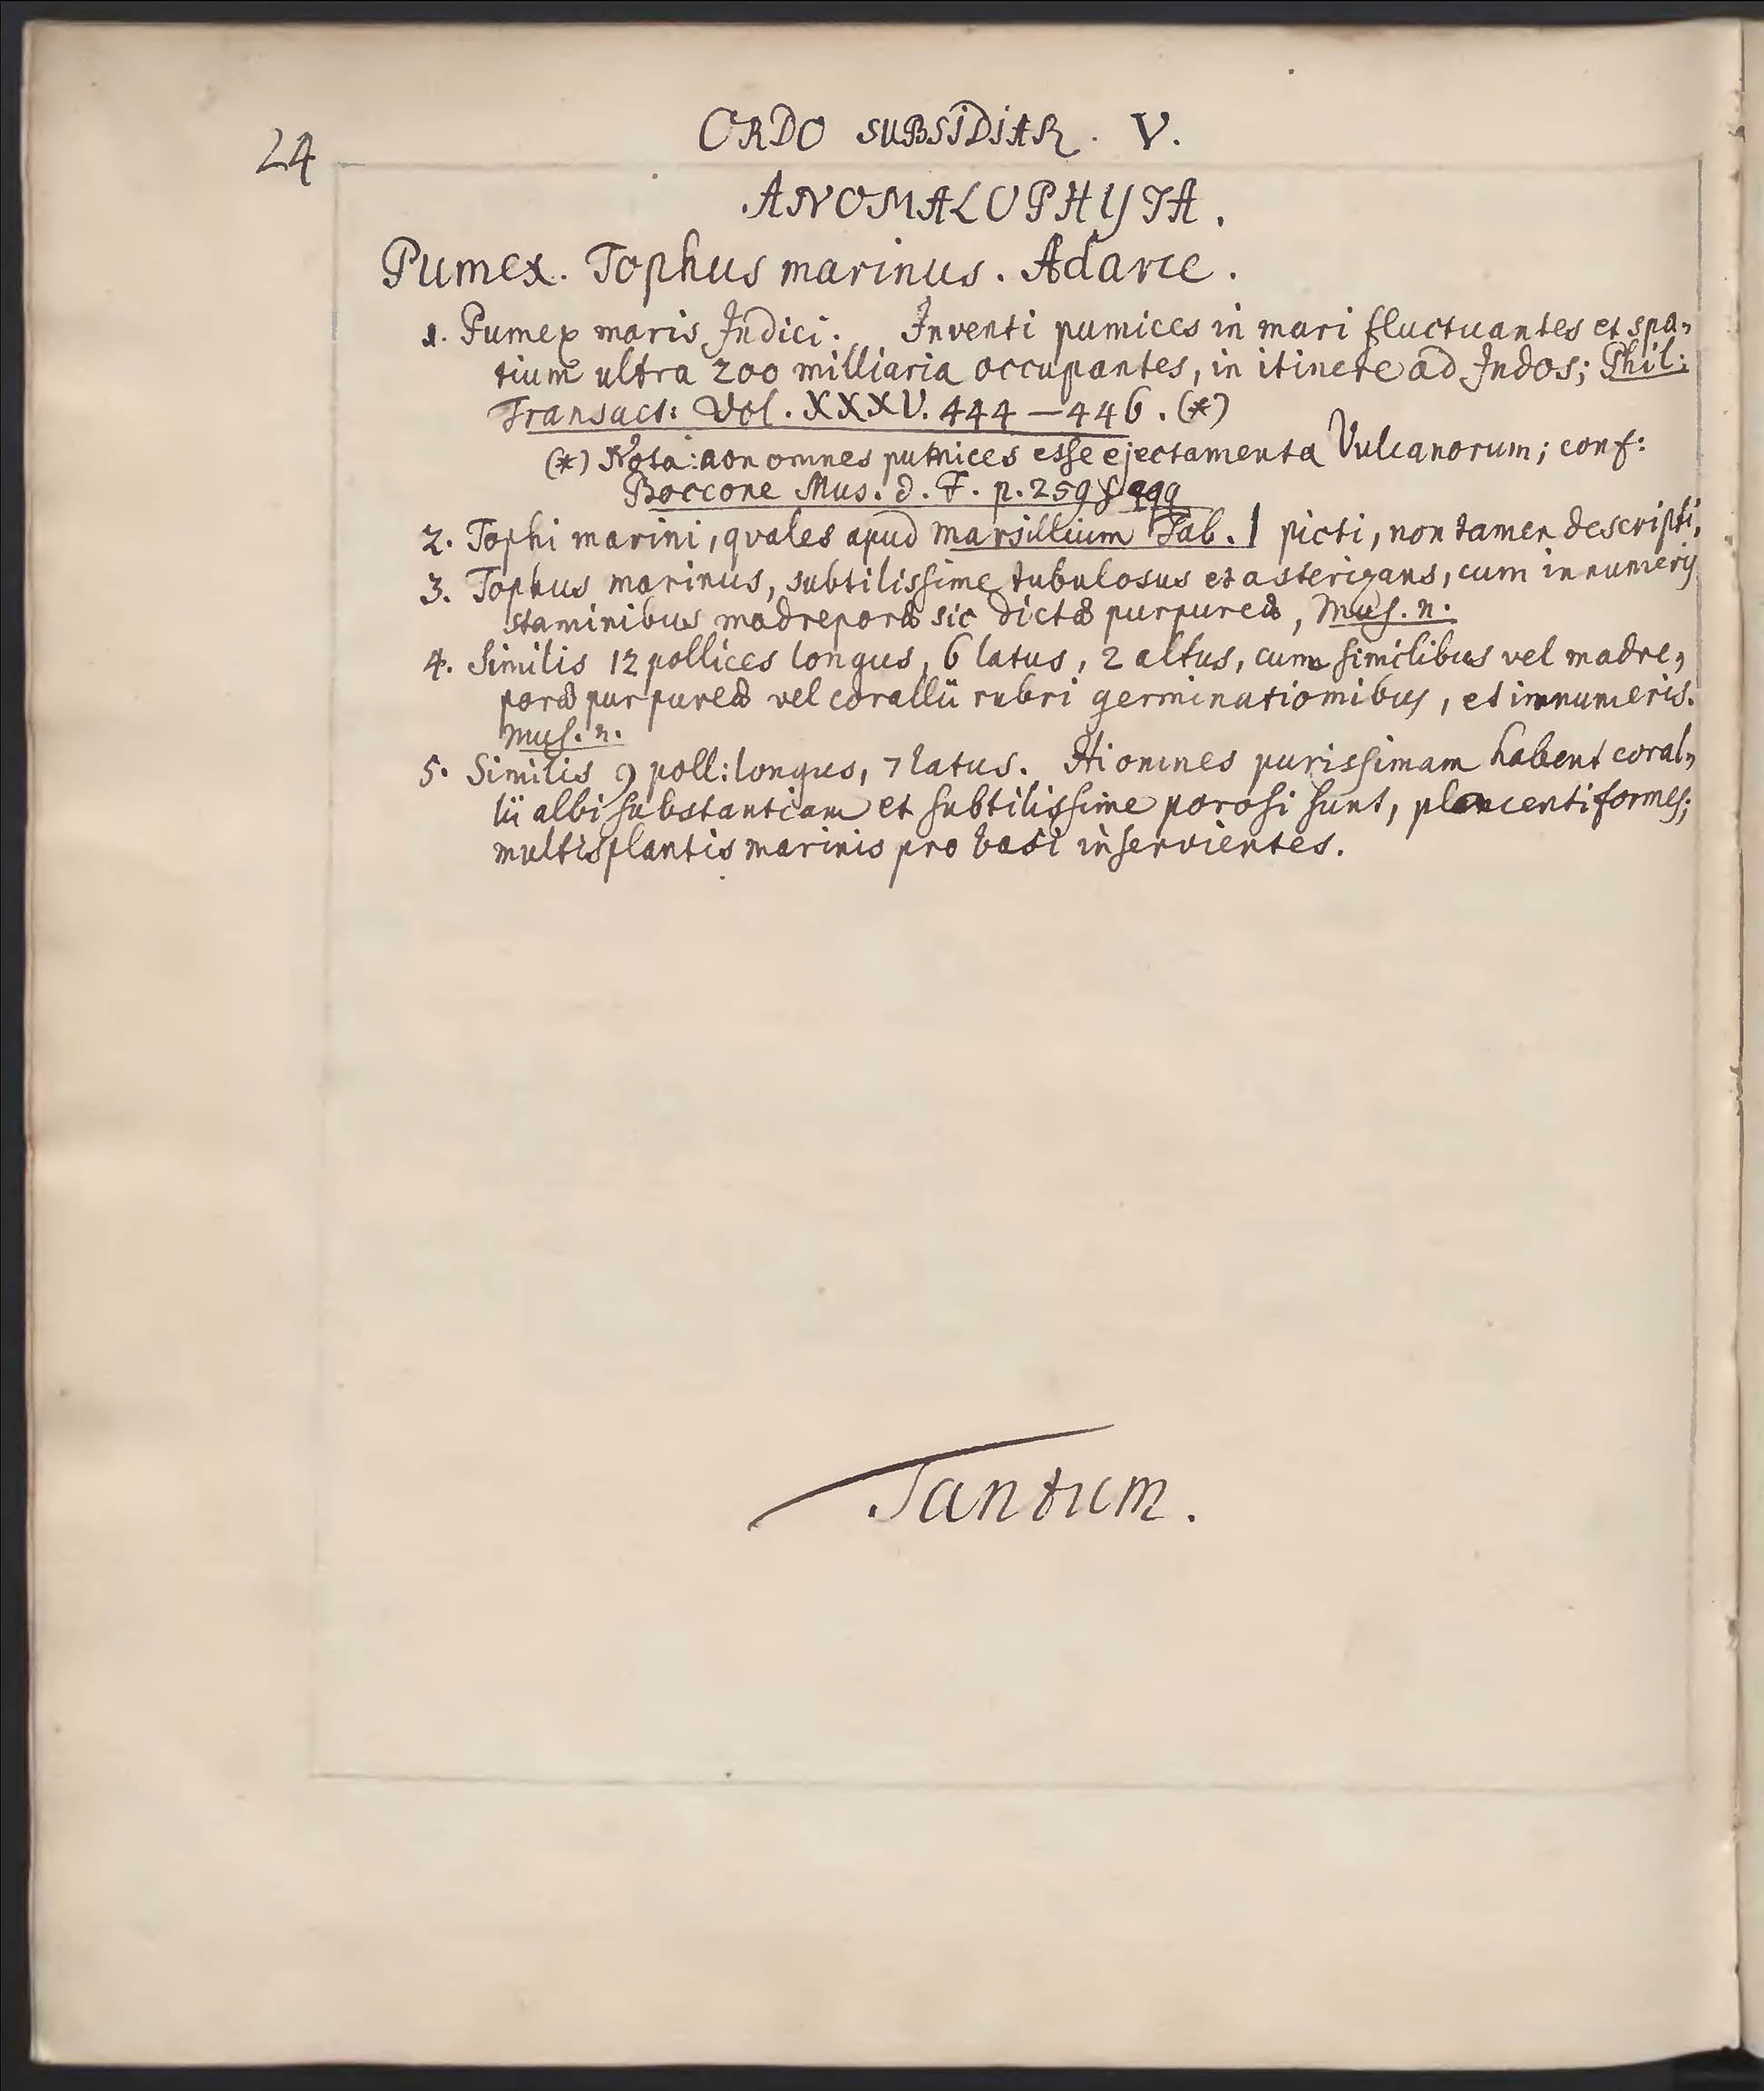 24
ORDO SUBSIDIAR. V.
ANOMALOPHYTA.
Pumex. Tophus marinus. Adarce.
1. Pumex maris Indici. Inventi pumices in mari fluctuantes et spa-
tium ultra 200 milliaria occupantes, in itinere ad Indos; Phil:
Transact: Vol. XXXV. 444—446. (*)
(*) Nota: non omnes pumices esse ejectamenta Vulcanorum; conf:
Boccone Mus. d. F. p. 259 sqq
2. Tophi marini, qvales apud Marsillium Tab. 1 picti, non tamen descripti.
3. Tophus marinus, subtilissime tubulosus et asterizans, cum innumeris
staminibus madreporæ sic dictæ purpureæ, Mus. n.
4. Similis 12 pollices longus, 6 latus, 2 altus, cum similibus vel madre-
poræ purpureæ vel corallii rubri germinationibus, et innumeris.
Mus. n.
5. Similis 9 poll: longus, 7 latus. Hi omnes purissimam habent coral-
lii albi substantiam et subtilissime porosi sunt, placentiformes;
multis plantis marinis pro basi inservientes.
Tantum.